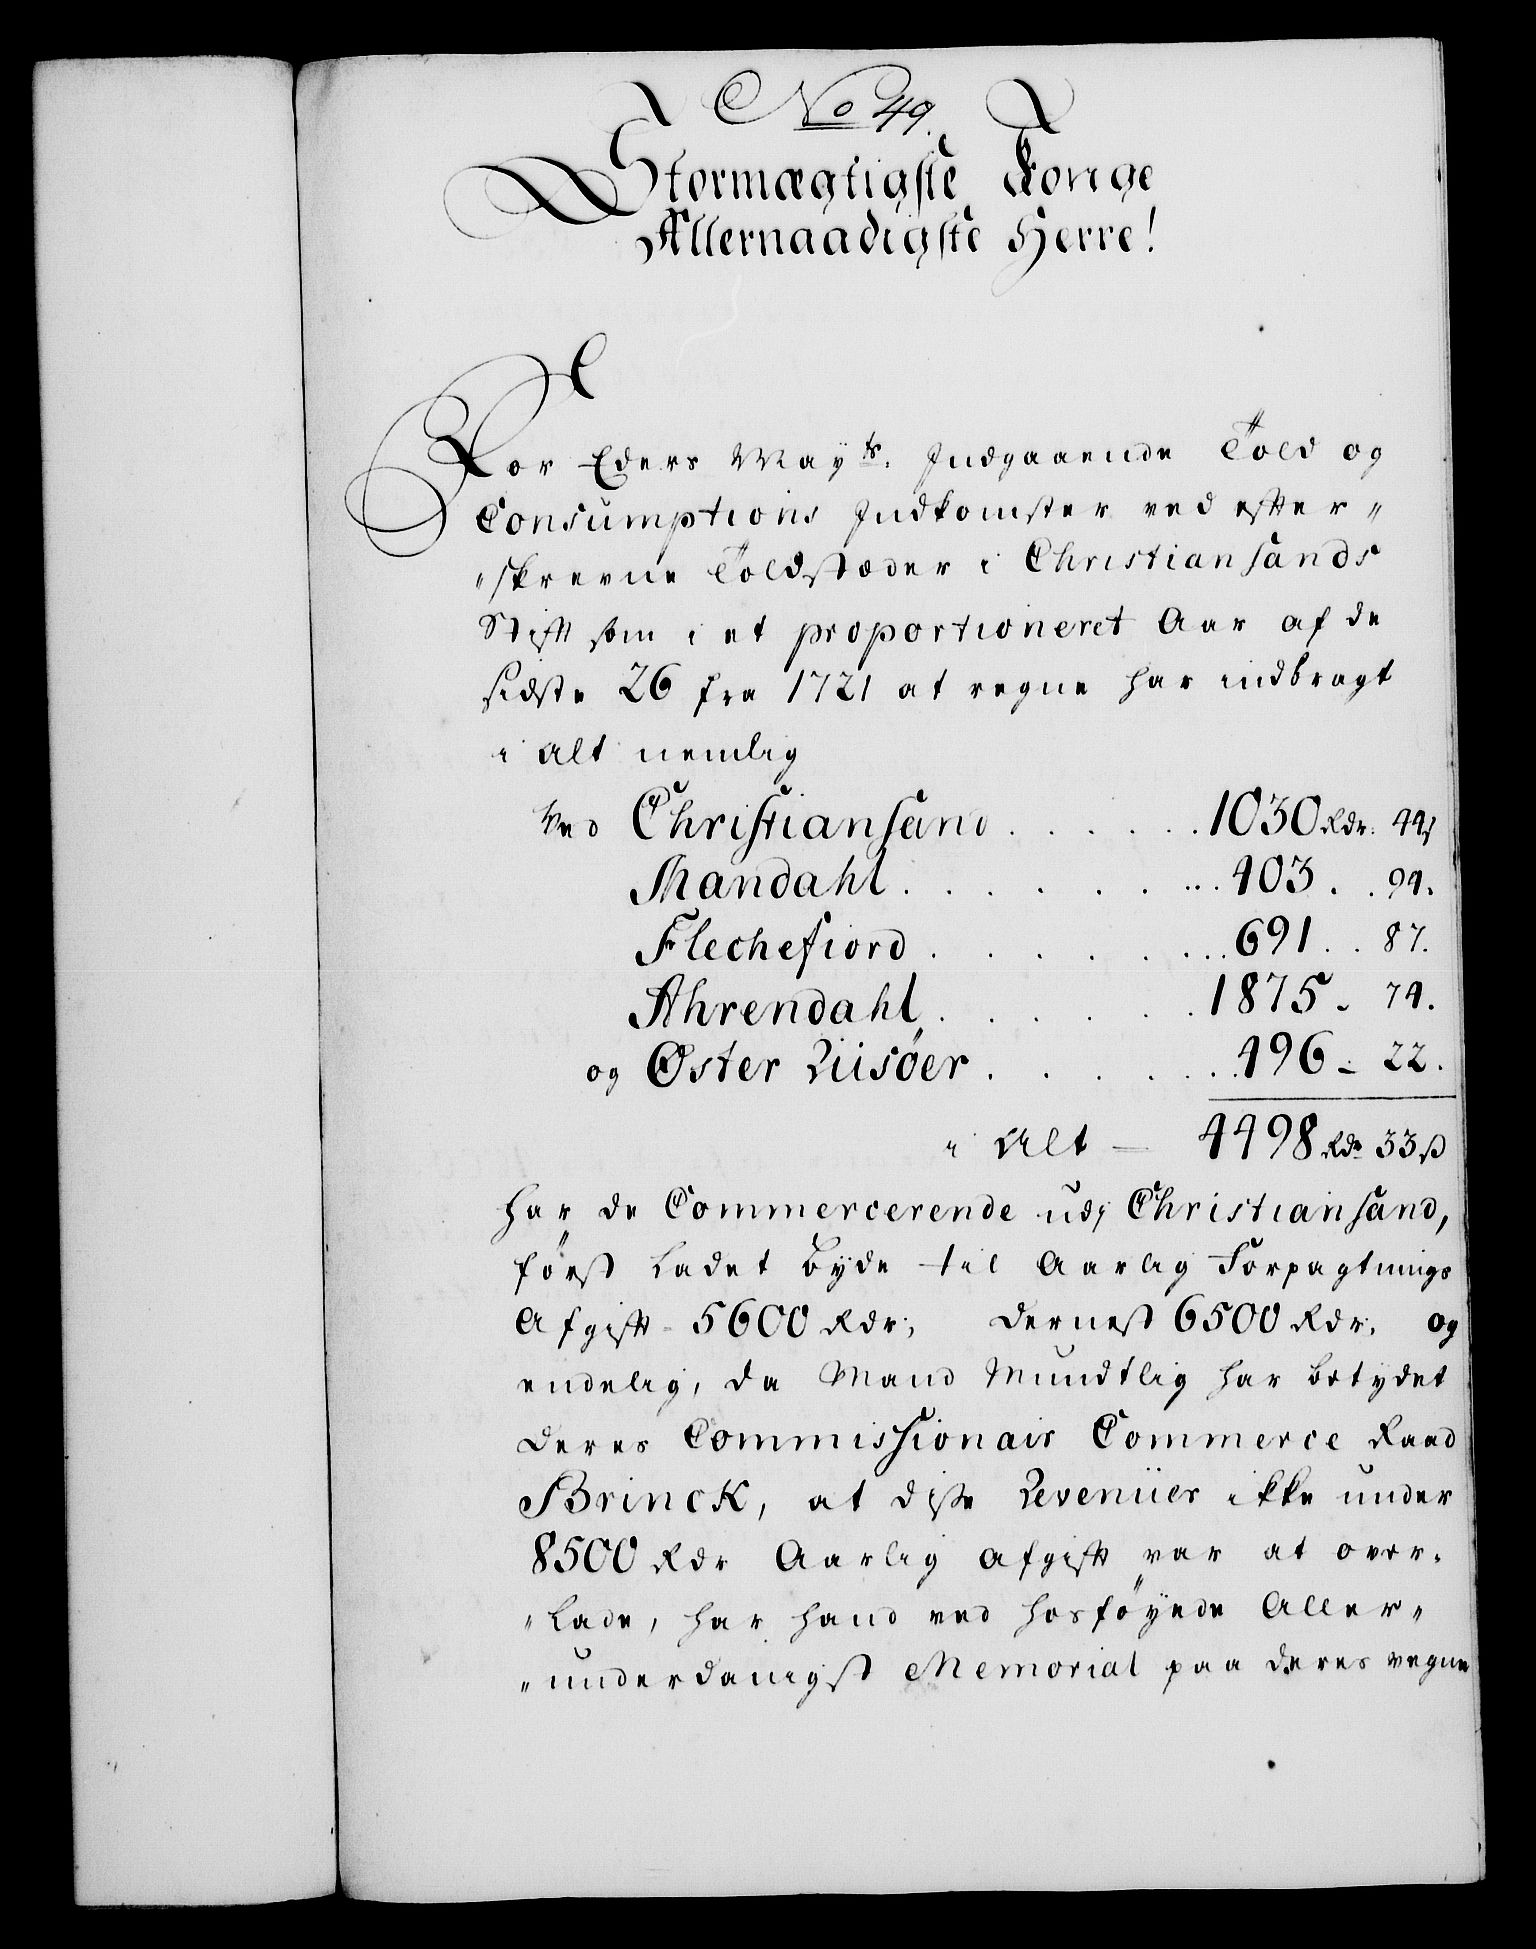 No 49.
Stormægtigste Konge
Allernaadigste Herre!
For Eders Mayts. Indgaaende Told og
Consumptions Indkomster ved efter„
„skrevne Toldstæder i Christiansands
Stift som i et proportioneret Aar af de
sidste 26 fra 1721 at regne har indbragt
i alt nemlig
Ved Christiansand . . . . . . 1030 Rdr. 44ß
Mandahl . . . . . . . . 403 . . 94.
Flechefiord . . . . . . . . 691 . . 87.
Ahrendahl . . . . . . 1875 . 74.
og Øster Riisöer . . . . . . 496 - 22.
i Alt — 4498 Rdr 33ß
har de Commercerende udj Christiansand,
först Ladet byde til Aarlig Forpagtnings
Afgift - 5600 Rdr; dernest 6500 Rdr. og
endelig, da Mand Mundtlig har betydet
deres Commissionair Commerce Raad
Brinck, at disse Revenüer ikke under
8500 Rdr Aarlig Afgift var at over„
„lade, har hand ved hosföyede Aller„
„underdanigst Memorial paa deres vegne